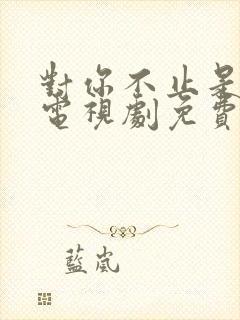 對你不止是
電視劇免費
藍嵐